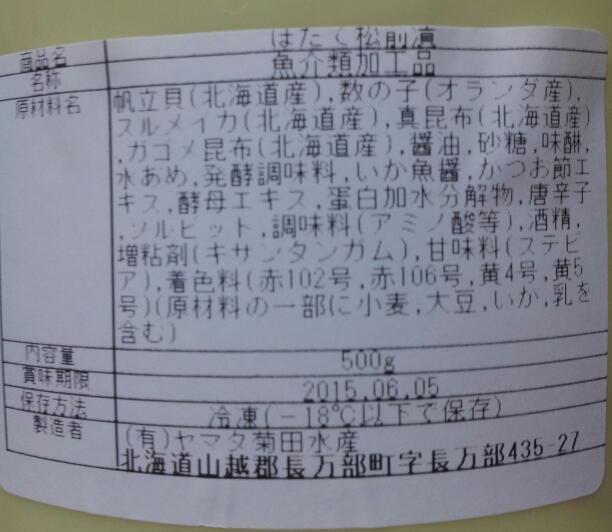 商品名 ほたて松前漬
名称 魚介類加工品
原材料名 帆立貝(北海道産),数の子(オランダ産),
スルメイカ(北海道産),真昆布(北海道産)
,ガゴメ昆布(北海道産),醤油,砂糖,味醂,
水あめ,発酵調味料,いか魚醤,かつお節エ
キス,酵母エキス,蛋白加水分解物,唐辛子
,ソルビット,調味料(アミノ酸等),酒精,
増粘剤(キサンタンガム),甘味料(ステビ
ア),着色料(赤102号,赤106号,黄4号,黄5
号)(原材料の一部に小麦,大豆,いか,乳を
含む)
内容量 500g
賞味期限 2015.06.05
保存方法 冷凍(-18℃以下で保存)
製造者 (有)ヤマタ菊田水産
北海道山越郡長万部町字長万部435-27